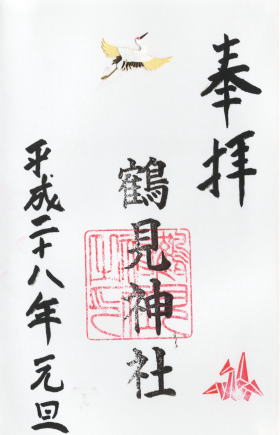 奉拝
鶴見神社
平成二十八年元旦